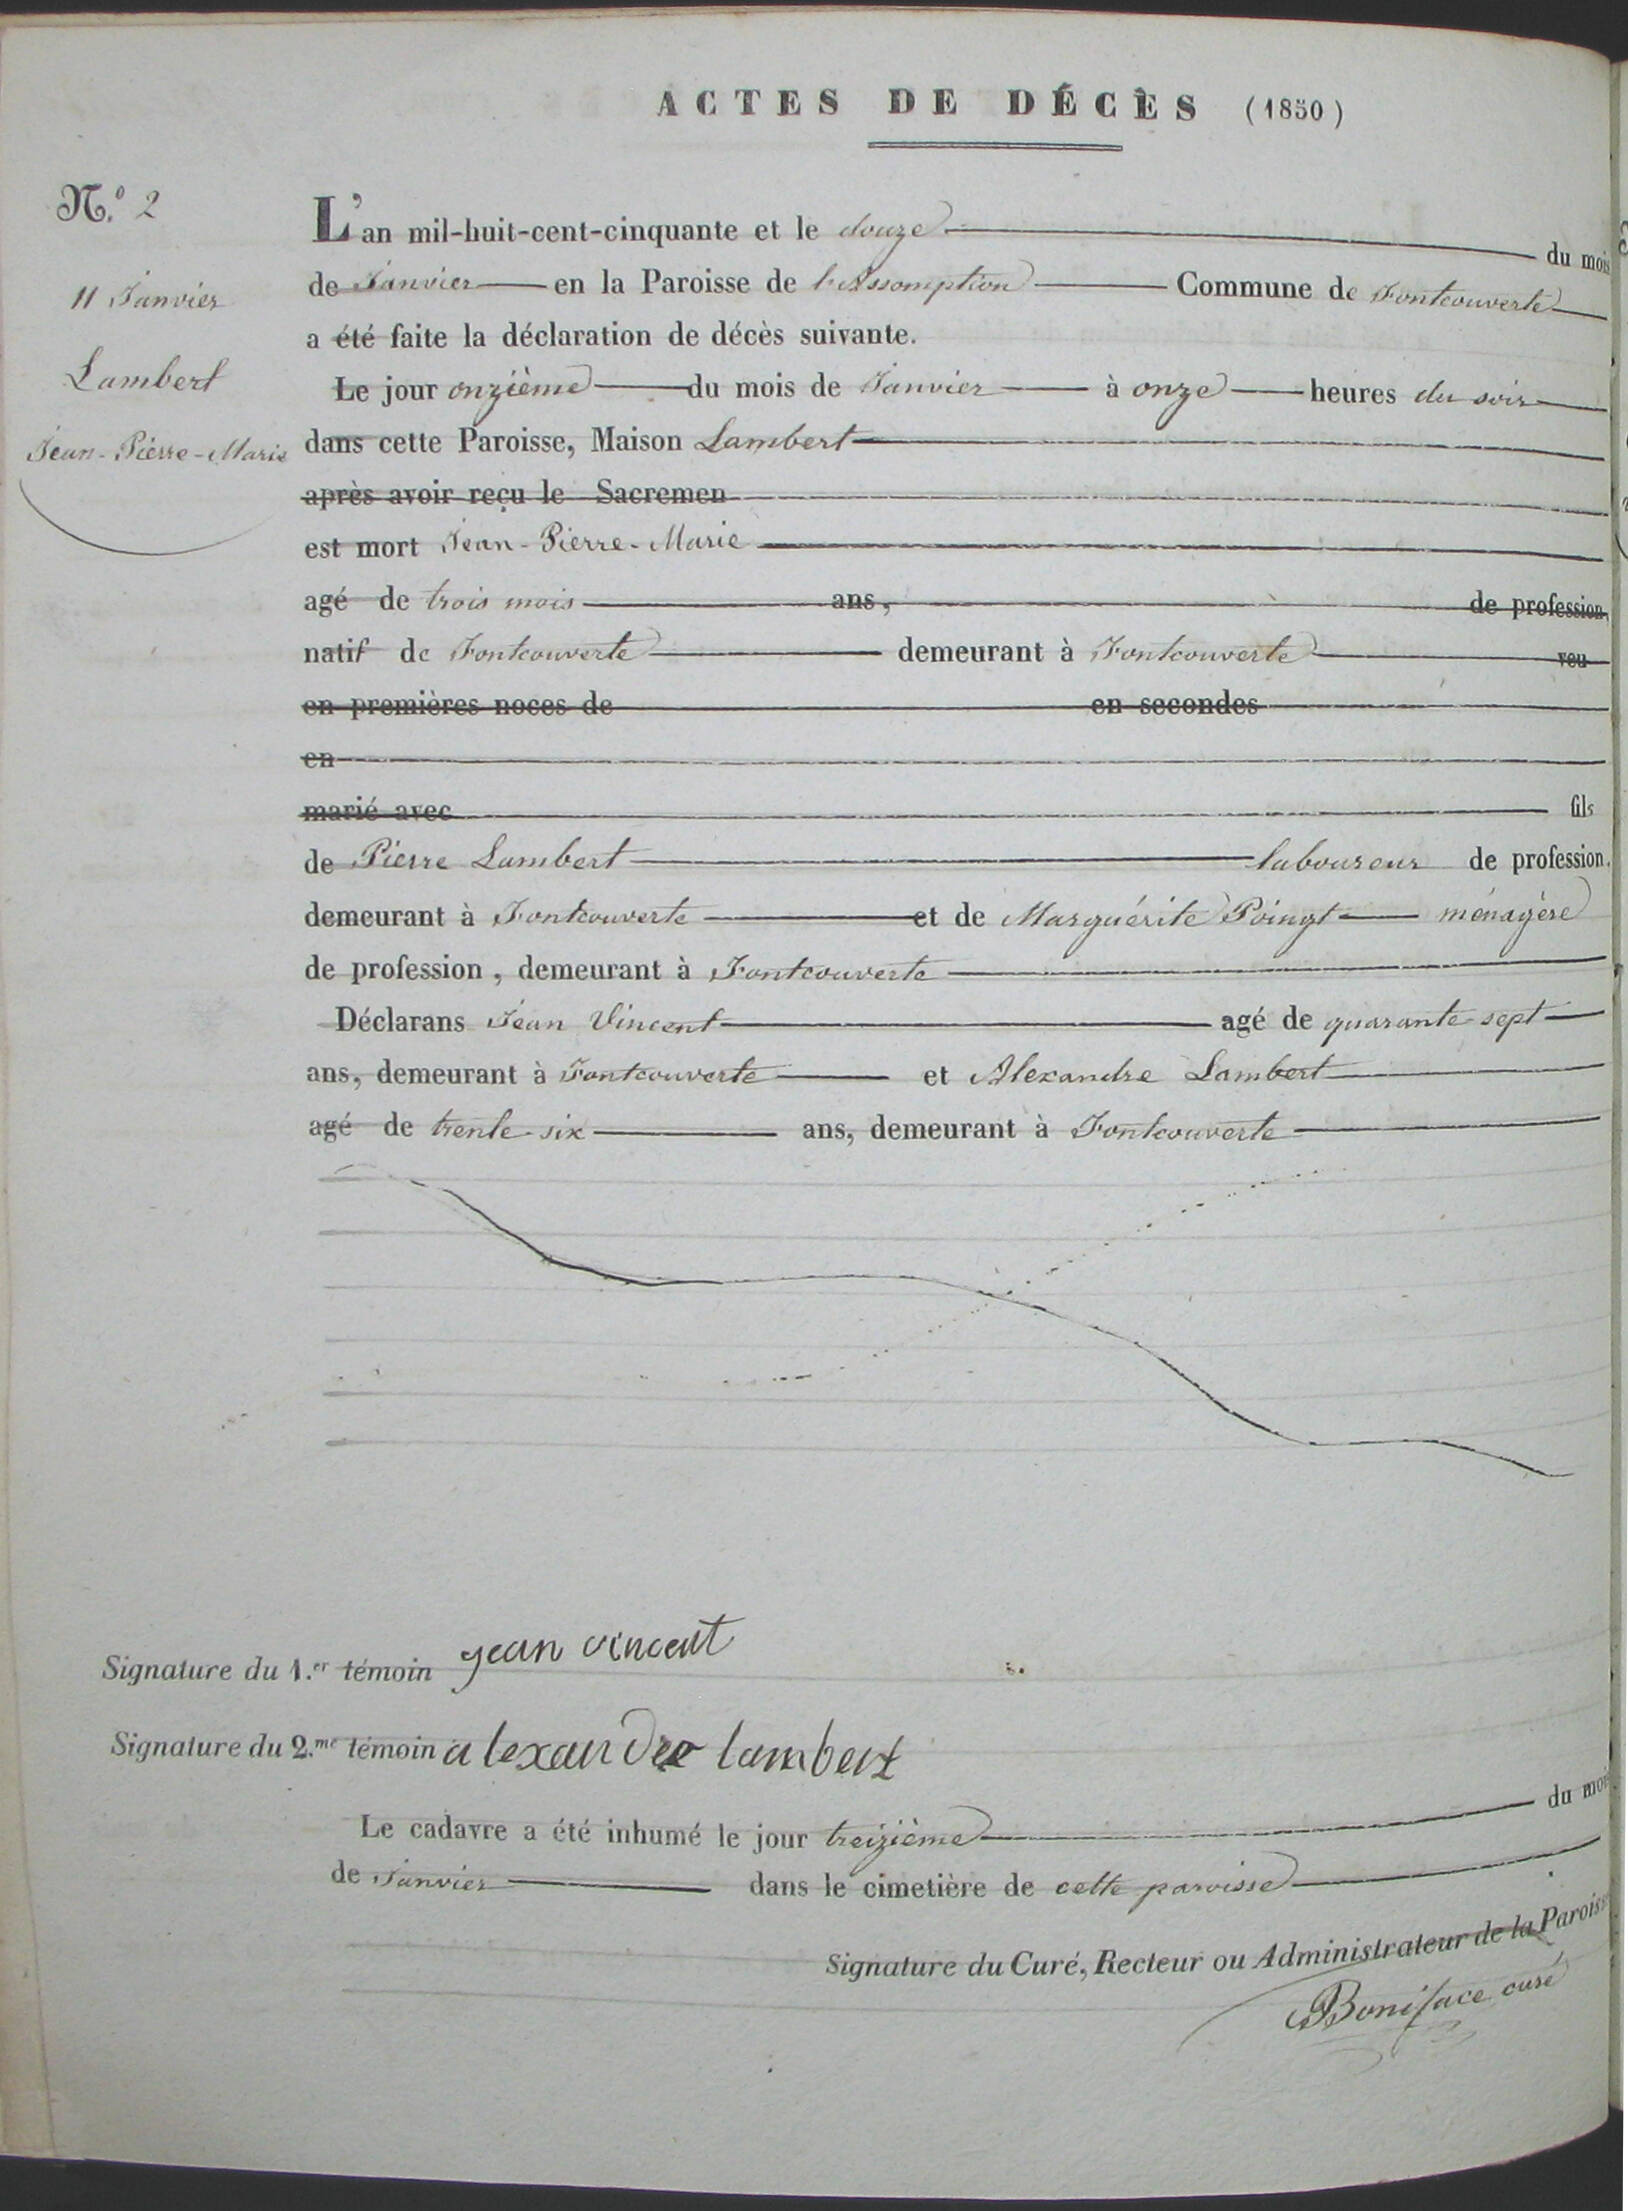 ACTES DE DÉCÈS (1850)
N.º 2
11 Janvier
Lambert
Jean-Pierre-Marie
L'an mil-huit-cent-cinquante et le douze du mois
de Janvier en la Paroisse de l'Assomption Commune de Fontcouverte
a été faite la déclaration de décès suivante.
Le jour onzième du mois de Janvier à onze heures du soir
dans cette Paroisse, Maison Lambert
après avoir reçu le Sacremen
est mort Jean-Pierre-Marie
agé de trois mois ans, de profession,
natif de Fontcouverte demeurant à Fontcouverte veu
en premières noces de en secondes
en
marié avec fils
de Pierre Lambert laboureur de profession.
demeurant à Fontcouverte et de Marguérite Poingt ménagère
de profession, demeurant à Fontcouverte
Déclarans Jean Vincent agé de quarante-sept
ans, demeurant à Fontcouverte et Alexandre Lambert
agé de trente-six ans, demeurant à Fontcouverte
Signature du 1.er témoin jean vincent
Signature du 2.me témoin alexandre lambert
Le cadavre a été inhumé le jour treizième du mois
de Janvier dans le cimetière de cette paroisse
Signature du Curé, Recteur ou Administrateur de la Paroisse
Boniface curé